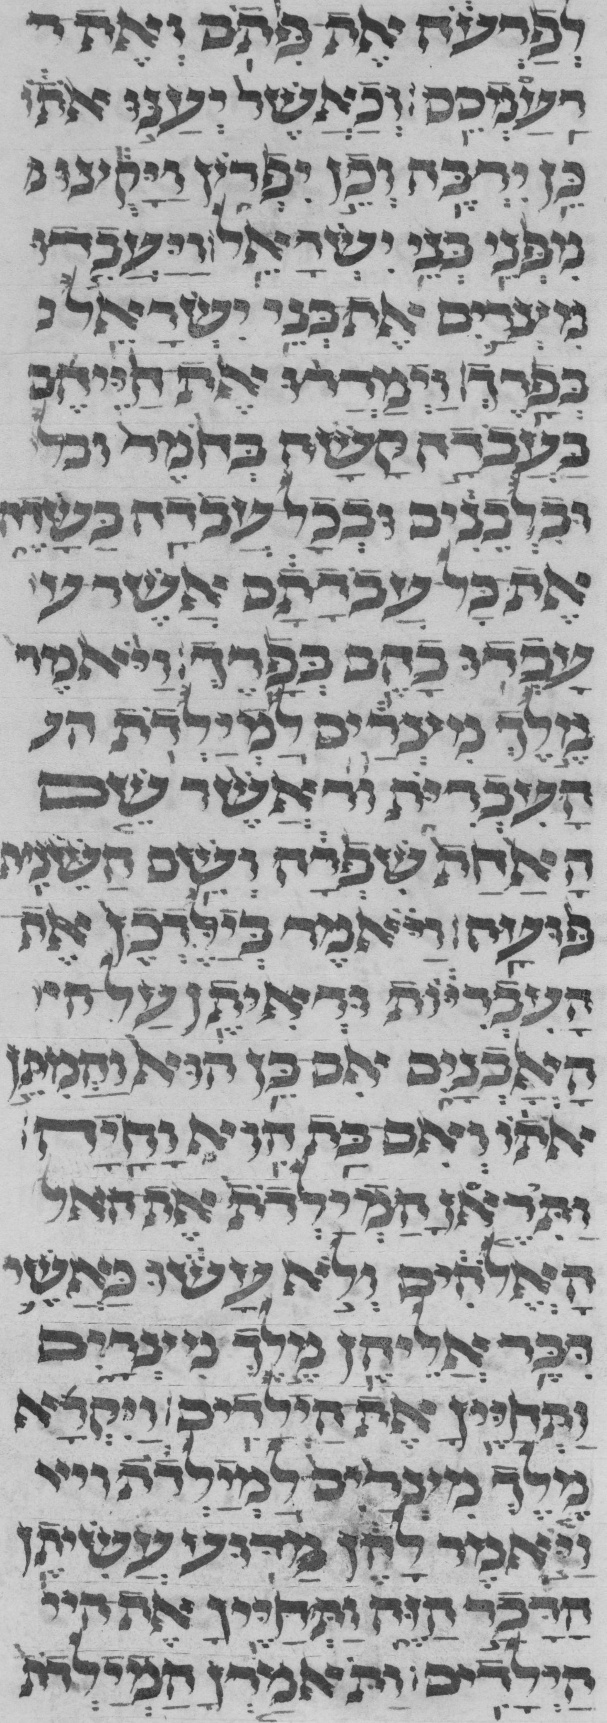 לְפַרְעֹה אֶת פִּתֹם וְאֶת ר
רַעַמְסֵס׃ וְכַאֲשֶׁר יְעַנּוּ אֹתוֹ
כֵּן יִרְבֶּה וְכֵן יִפְרֹץ וַיָּקֻצוּ מ
מִפְּנֵי בְּנֵי יִשְׂרָאֵל׃ וַיַּעֲבִדוּ
מִצְרַיִם אֶת בְּנֵי יִשְׂרָאֵל ב
בְּפָרֶךְ׃ וַיְמָרְרוּ אֶת חַיֵּיהֶם
בַּעֲבֹדָה קָשָׁה בְּחֹמֶר ובל
וּבִלְבֵנִים וּבְכָל עֲבֹדָה בַּשָּׂדֶה
אֵת כָּל עֲבֹדָתָם אֲשֶׁר ע
עָבְדוּ בָהֶם בְּפָרֶךְ׃ וַיֹּאמֶר
מֶלֶךְ מִצְרַיִם לַמְיַלְּדֹת הע
הָעִבְרִיֹּת אֲשֶׁר שֵׁם
הָאַחַת שִׁפְרָה וְשֵׁם הַשֵּׁנִית
פּוּעָה׃ וַיֹּאמֶר בְּיַלֶּדְכֶן אֶת
הָעִבְרִיּוֹת וּרְאִיתֶן עַל ה
הָאָבְנָיִם אִם בֵּן הוּא וַהֲמִתֶּן
אֹתוֹ וְאִם בַּת הִוא וָחָיָה׃
וַתִּירֶאןָ הַמְיַלְּדֹת אֶת האל
הָאֱלֹהִים וְלֹא עָשׂוּ כַּאֲשֶׁר
דִּבֶּר אֲלֵיהֶן מֶלֶךְ מִצְרָיִם
וַתְּחַיֶּיןָ אֶת הַיְלָדִים׃ וַיִּקְרָא
מֶלֶךְ מִצְרַיִם לַמְיַלְּדֹת ויא
וַיֹּאמֶר לָהֶן מַדּוּעַ עֲשִׂיתֶן
הַדָּבָר הַזֶּה וַתְּחַיֶּיןָ אֶת היי
הַיְלָדִים׃ וַתֹּאמַרְןָ הַמְיַלְּדֹת